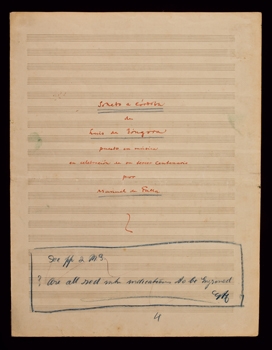 Soneto a Córdoba
de
Luis de Góngora
puesto en música
en celebración de su tercer Centenario
por
Manuel de Falla
See pp 2 &
? Are all red ink indications to be Engraved
4